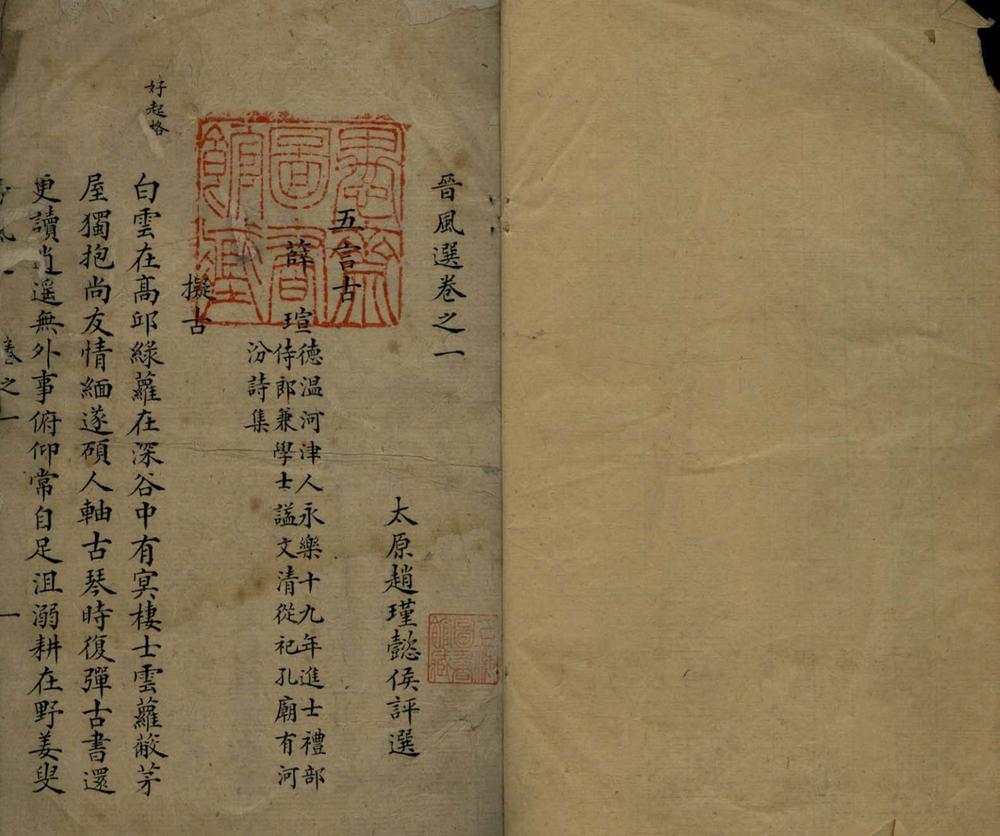 晉風選卷之一
太原趙瑾懿侯評選
五言古
薛瑄
德温河津人永樂十九年進士禮部
侍郎兼學士謚文清從祀孔廟有河
汾詩集
擬古
好起格
白雲在高邱綠蘿在深谷中有冥棲士雲蘿蔽茅
屋獨抱尚友情緬遂碩人軸古琴時復彈古書還
更讀逍遥無外事俯仰常自足沮溺耕在野姜叟
卷之一
一
圖書
館藏